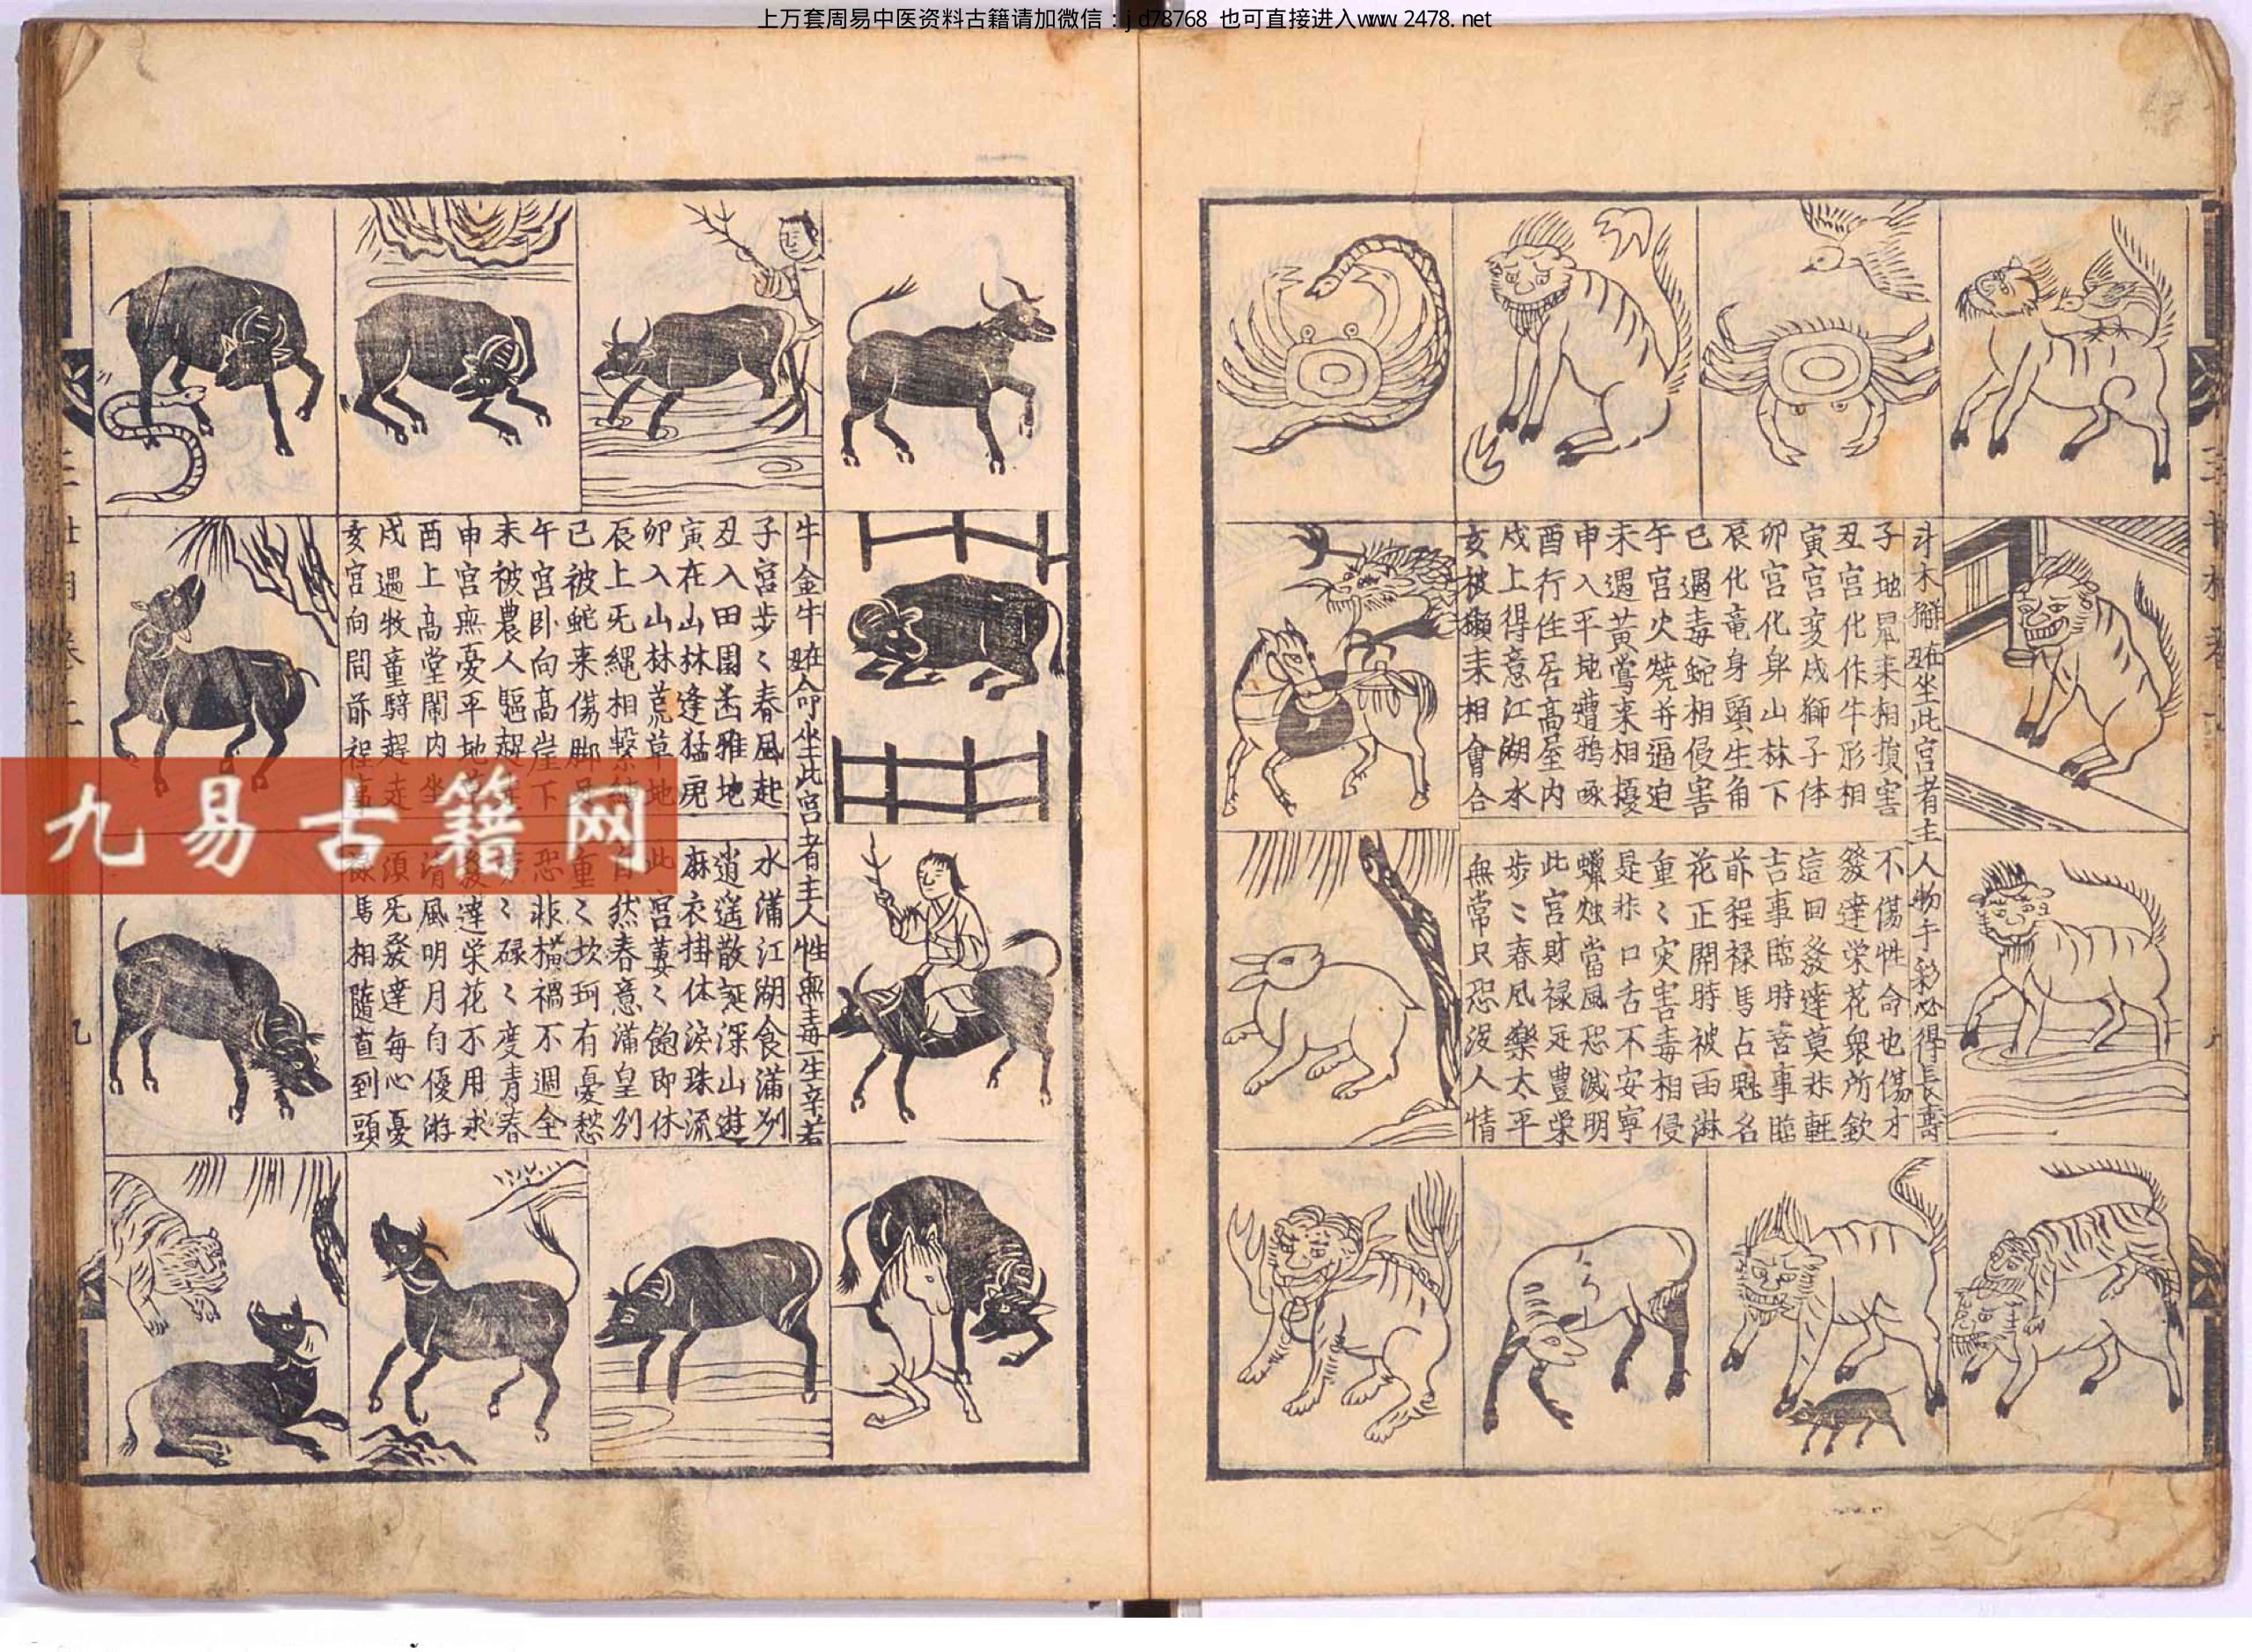 上万套周易中医资料古籍请加微信：jd78768 也可直接进入www.2478.net
斗木獬在丑坐此宫者主人物手彩必得長壽
子地鼠来相損害
丑宫化作牛形相
寅宫变成獅子体
卯宫化身山林下
辰化竜身頭生角
巳遇毒蛇相侵害
午宫火燒并逼迫
未遇黄鶯来相擾
申入平地遭鴉啄
酉行住居高屋内
戍上得意江湖水
亥被獺来相會合
不傷性命也傷才
發達栄花衆所欽
這回發達莫非軽
吉事臨時喜事臨
前程禄馬占魁名
花正開時被雨淋
重〻灾害毒相侵
是非口舌不安寧
蠟烛當風恐滅明
此宫財禄足豊栄
步〻春风樂太平
無常只恐没人情
牛金牛在丑命坐此宫者主人性無毒一生辛若
子宫步〻春風起
丑入田園𠙽雅地
寅在山林逢猛虎
卯入山林荒草地
辰上旡繩相繫
巳被蛇来傷脚
午宫卧向高崖下
未被農人驅起
申宫無憂平地
酉上高堂閙内坐
戍遇牧童騎起走
亥宫向問前程事
水滿江湖食滿列
逍遥散誕深山遊
麻衣挂体淚珠流
此宫萋〻飽即休
自然春意滿皇列
重〻坎坷有憂愁
恐非横禍不週全
〻碌〻度青春
發達栄花不用求
清風明月自優游
須旡發達每心憂
禄馬相隨直到頭
九易古籍网